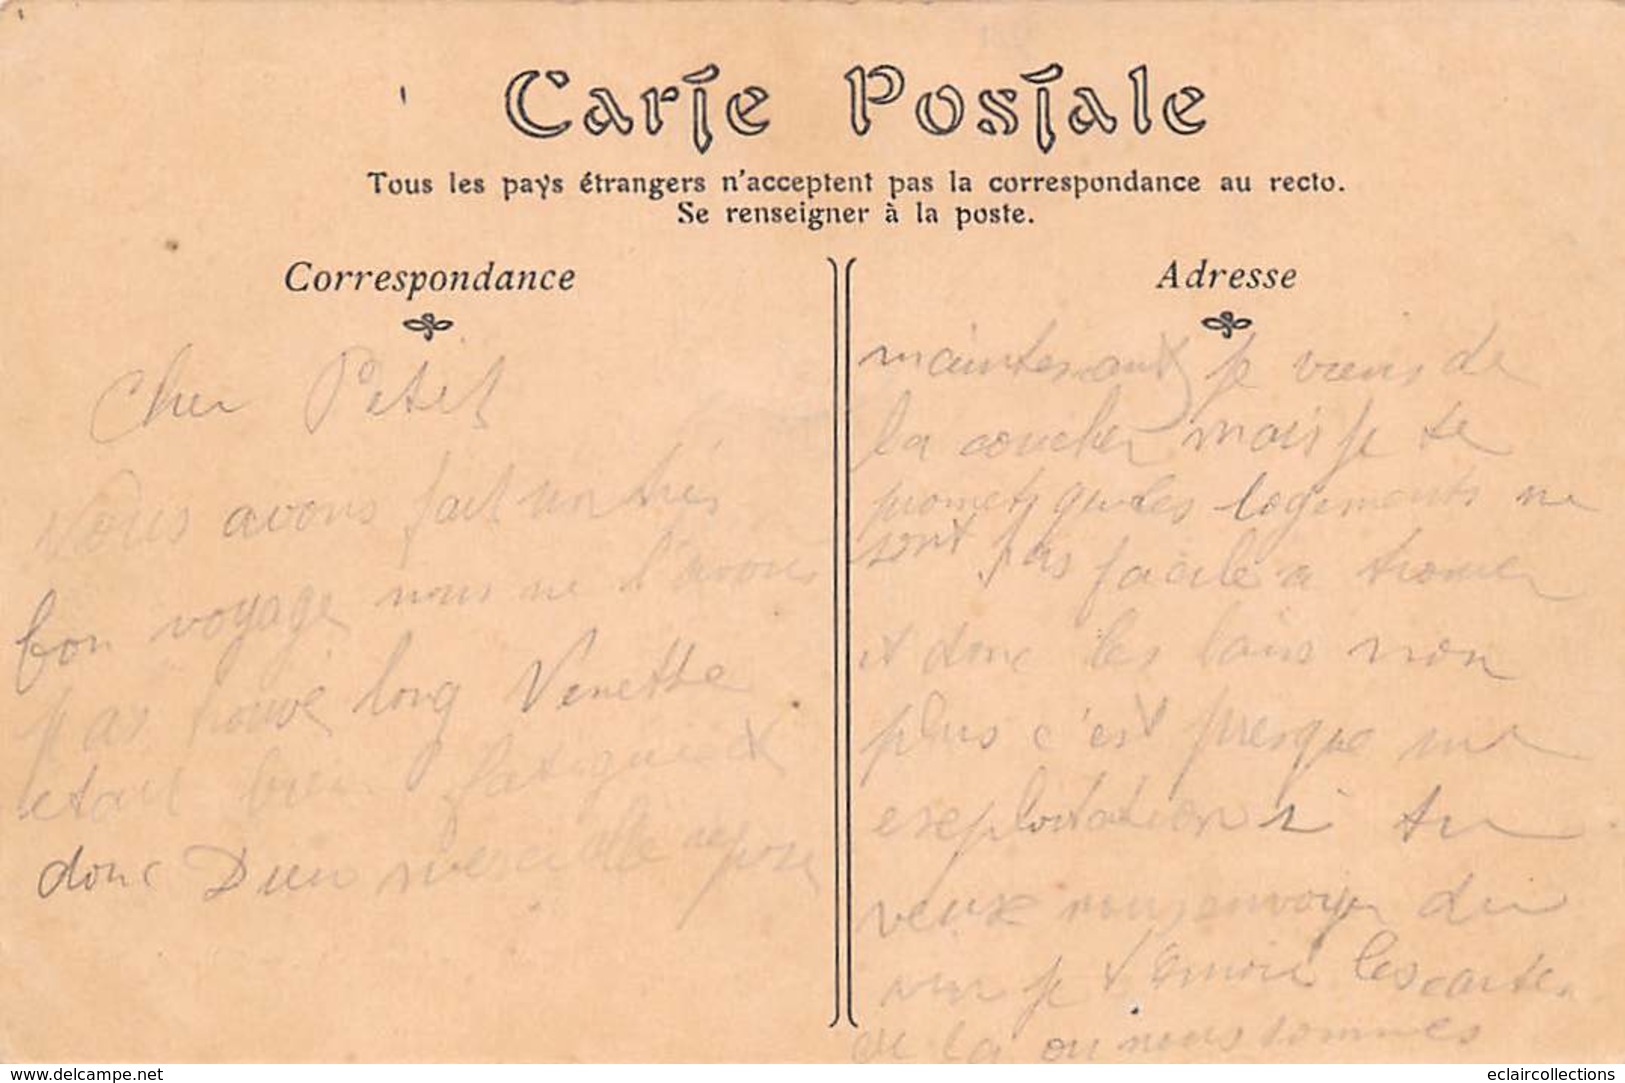 Carte Postale
Tous les pays étrangers n'acceptent pas la correspondance au recto.
Se renseigner à la poste.
Correspondance
Cher Petit
Nous avons fait un très
bon voyage nous ne l'avons
pas trouvé long Venette
etait bien fatiguée et
donc Dieu elle repose
Adresse
maintenant je viens de
la coucher mais je te
promets que les logements ne
sont pas facile a trouver
et donc les bains non
plus c'est presque une
exeploitation si tu
veux nous envoyer
je t'envoie les cartes
de la ou nous sommes
www.delcampe.net
eclaircollections